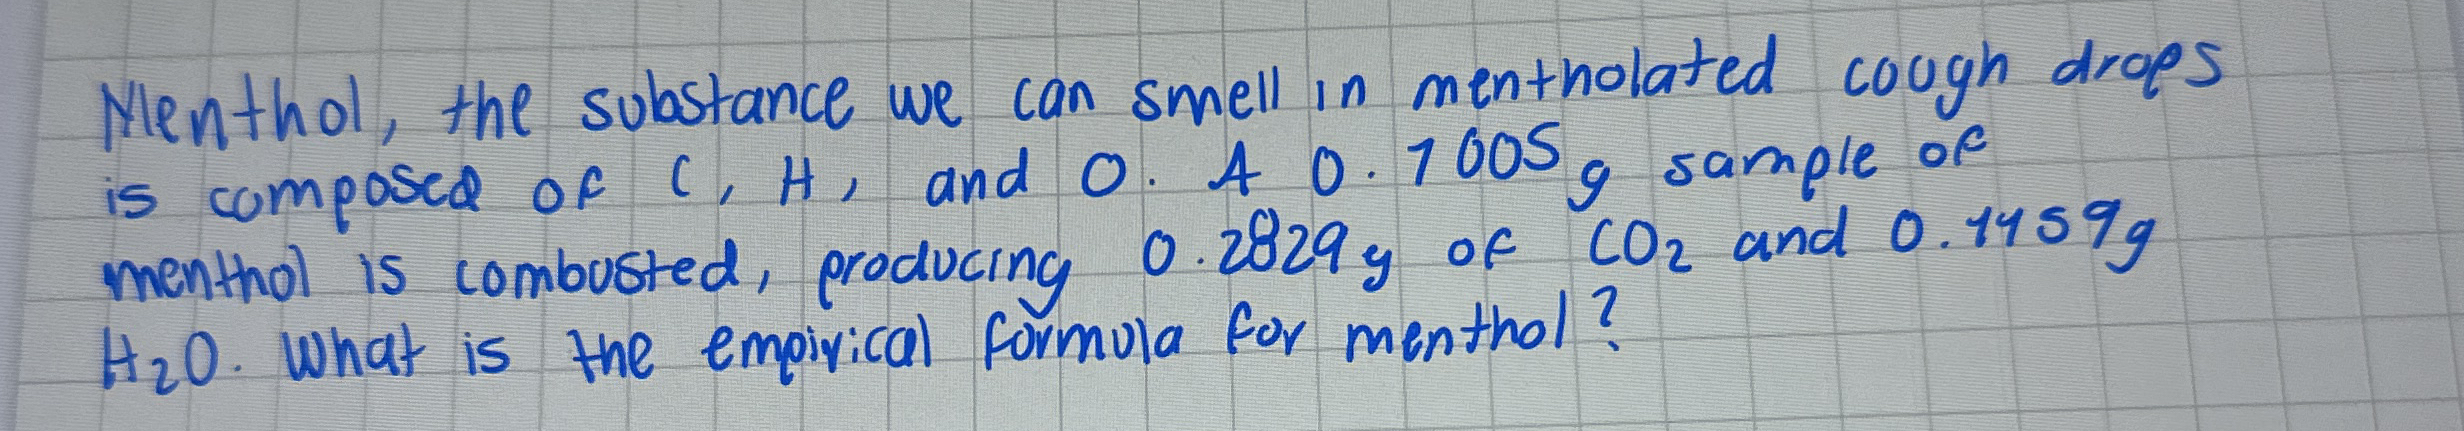 Menthol, the substance we can smell in mentholated cough drops
is composed of C, H, and O. A 0.1005g sample of
menthol is combusted, producing 0.2829g of CO₂ and 0.1159g
H₂O. What is the empirical formula for menthol?